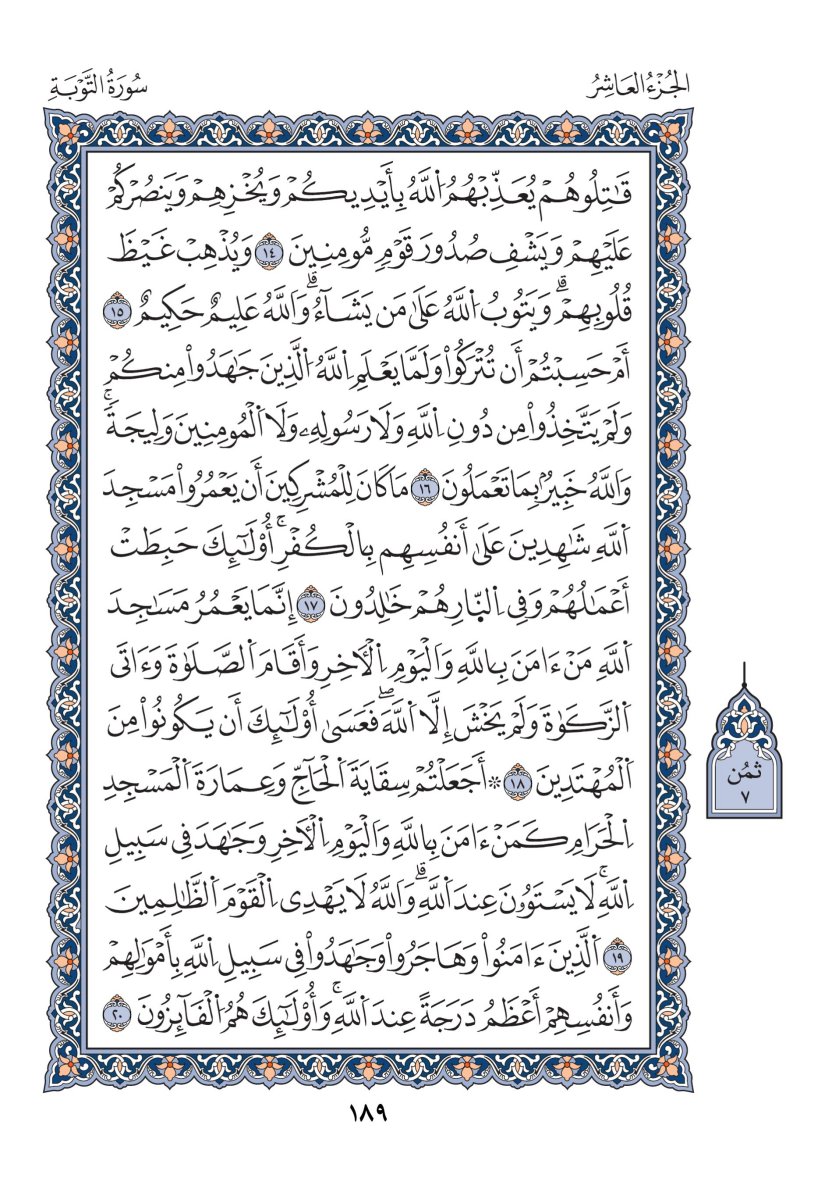 الجُزْءُ العَاشِرُ
سُورَةُ التَّوْبَةِ
قَٰتِلُوهُمْ يُعَذِّبْهُمُ اُ۬للَّهُ بِأَيْدِيكُمْ وَيُخْزِهِمْ وَيَنصُرْكُمْ
عَلَيْهِمْ وَيَشْفِ صُدُورَ قَوْمٖ مُّومِنِينَ ١٤ وَيُذْهِبْ غَيْظَ
قُلُوبِهِمْۗ وَيَتُوبُ اُ۬للَّهُ عَلَىٰ مَن يَشَآءُۗ وَاَللَّهُ عَلِيمٌ حَكِيمٌ ١٥
أَمْ حَسِبْتُمْ أَن تُتْرَكُواْ وَلَمَّا يَعْلَمِ اِ۬للَّهُ اُ۬لَّذِينَ جَٰهَدُواْ مِنكُمْ
وَلَمْ يَتَّخِذُواْ مِن دُونِ اِ۬للَّهِ وَلَا رَسُولِهِۦ وَلَا اَ۬لْمُومِنِينَ وَلِيجَةٗۚ
وَاَللَّهُ خَبِيرُۢ بِمَا تَعْمَلُونَ ١٦ مَا كَانَ لِلْمُشْرِكِينَ أَن يَعْمُرُواْ مَسْجِدَ
اَ۬للَّهِ شَٰهِدِينَ عَلَىٰ أَنفُسِهِم بِالْكُفْرِۚ أُوْلَٰٓئِكَ حَبِطَتْ
أَعْمَٰلُهُمْ وَفِي اِ۬لنّ۪ارِ هُمْ خَٰلِدُونَ ١٧ إِنَّمَا يَعْمُرُ مَسَٰجِدَ
اَ۬للَّهِ مَنْ ءَامَنَ بِاللَّهِ وَاَلْيَوْمِ اِ۬لْأٓخِرِ وَأَقَامَ اَ۬لصَّلَوٰةَ وَءَاتَى
اَ۬لزَّكَوٰةَ وَلَمْ يَخْشَ إِلَّا اَ۬للَّهَۖ فَعَسَىٰ أُوْلَٰٓئِكَ أَن يَكُونُواْ مِنَ
اَ۬لْمُهْتَدِينَ ١٨ * أَجَعَلْتُمْ سِقَايَةَ اَ۬لْحَآجِّ وَعِمَارَةَ اَ۬لْمَسْجِدِ
اِ۬لْحَرَامِ كَمَنْ ءَامَنَ بِاللَّهِ وَاَلْيَوْمِ اِ۬لْأٓخِرِ وَجَٰهَدَ فِي سَبِيلِ
اِ۬للَّهِۚ لَا يَسْتَوُۥنَ عِندَ اَ۬للَّهِۗ وَاَللَّهُ لَا يَهْدِي اِ۬لْقَوْمَ اَ۬لظَّٰلِمِينَ
١٩ اَ۬لَّذِينَ ءَامَنُواْ وَهَاجَرُواْ وَجَٰهَدُواْ فِي سَبِيلِ اِ۬للَّهِ بِأَمْوَٰلِهِمْ
وَأَنفُسِهِمْ أَعْظَمُ دَرَجَةً عِندَ اَ۬للَّهِۚ وَأُوْلَٰٓئِكَ هُمُ اُ۬لْفَآئِزُونَ ٢٠
ثُمُن
٧
١٨٩